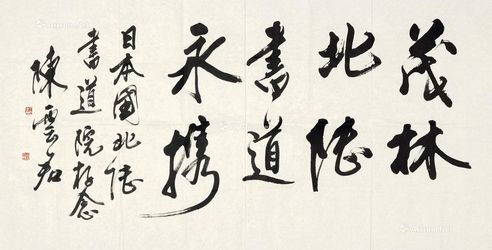 茂林
北陸
書道
永携
日本國北陸
書道院存念
陳雲君